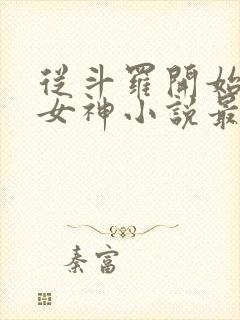 從斗羅開始
女神小說最
秦富